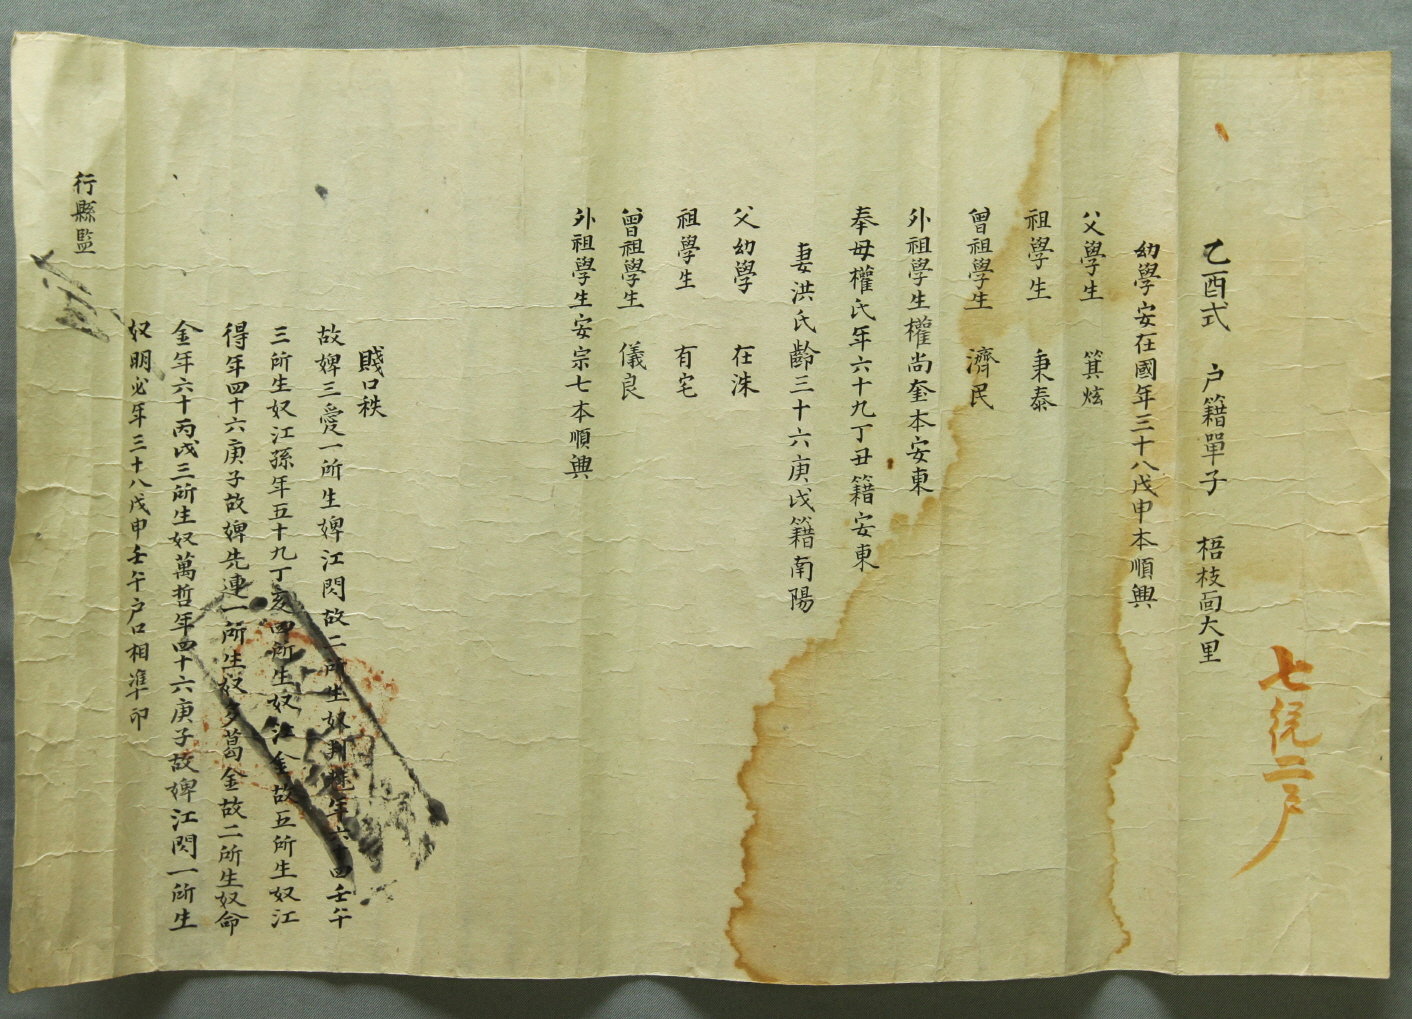 七統二戶
乙酉式 戶籍單子 梧枝面大里
幼學安在國年三十八戊申本順興
父學生 箕炫
祖學生 秉泰
曾祖學生 濟民
外祖學生權尚奎本安東
奉母權氏年六十九丁丑籍安東
妻洪氏齡三十六庚戌籍南陽
父幼學 在洙
祖學生 有宅
曾祖學生 儀良
外祖學生安宗七本順興
賤口秩
故婢三愛一所生婢江閃故二所生奴年六四壬午
三所生奴江孫年五十九丁亥四所生奴江金故五所生奴江
得年四十六庚子故婢先連一所生奴夕葛金故二所生奴命
金年六十丙戌三所生奴萬哲年四十六庚子故婢江閃一所生
奴明必年三十八戊申壬午戶口相準印
行縣監